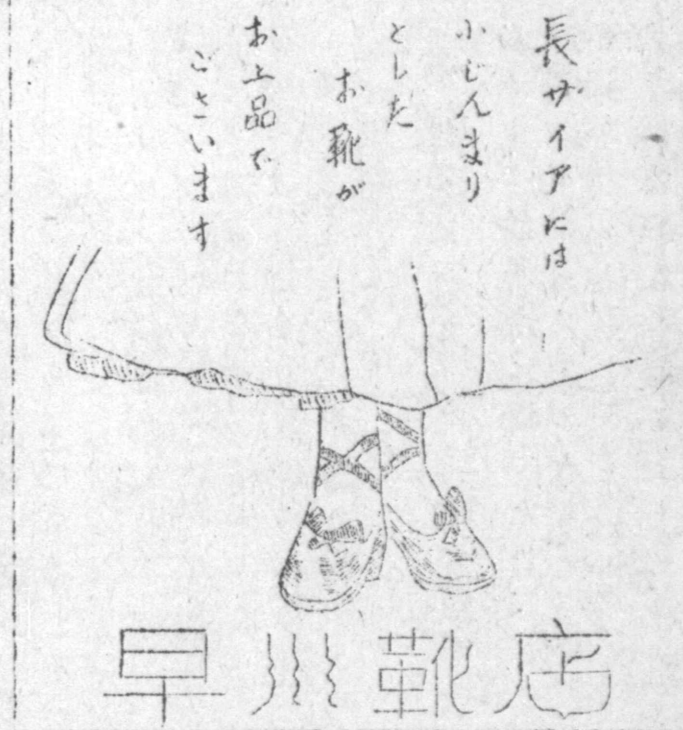 長ザイアには
小じんまり
とした
お靴が
お上品で
ございます
早川靴店